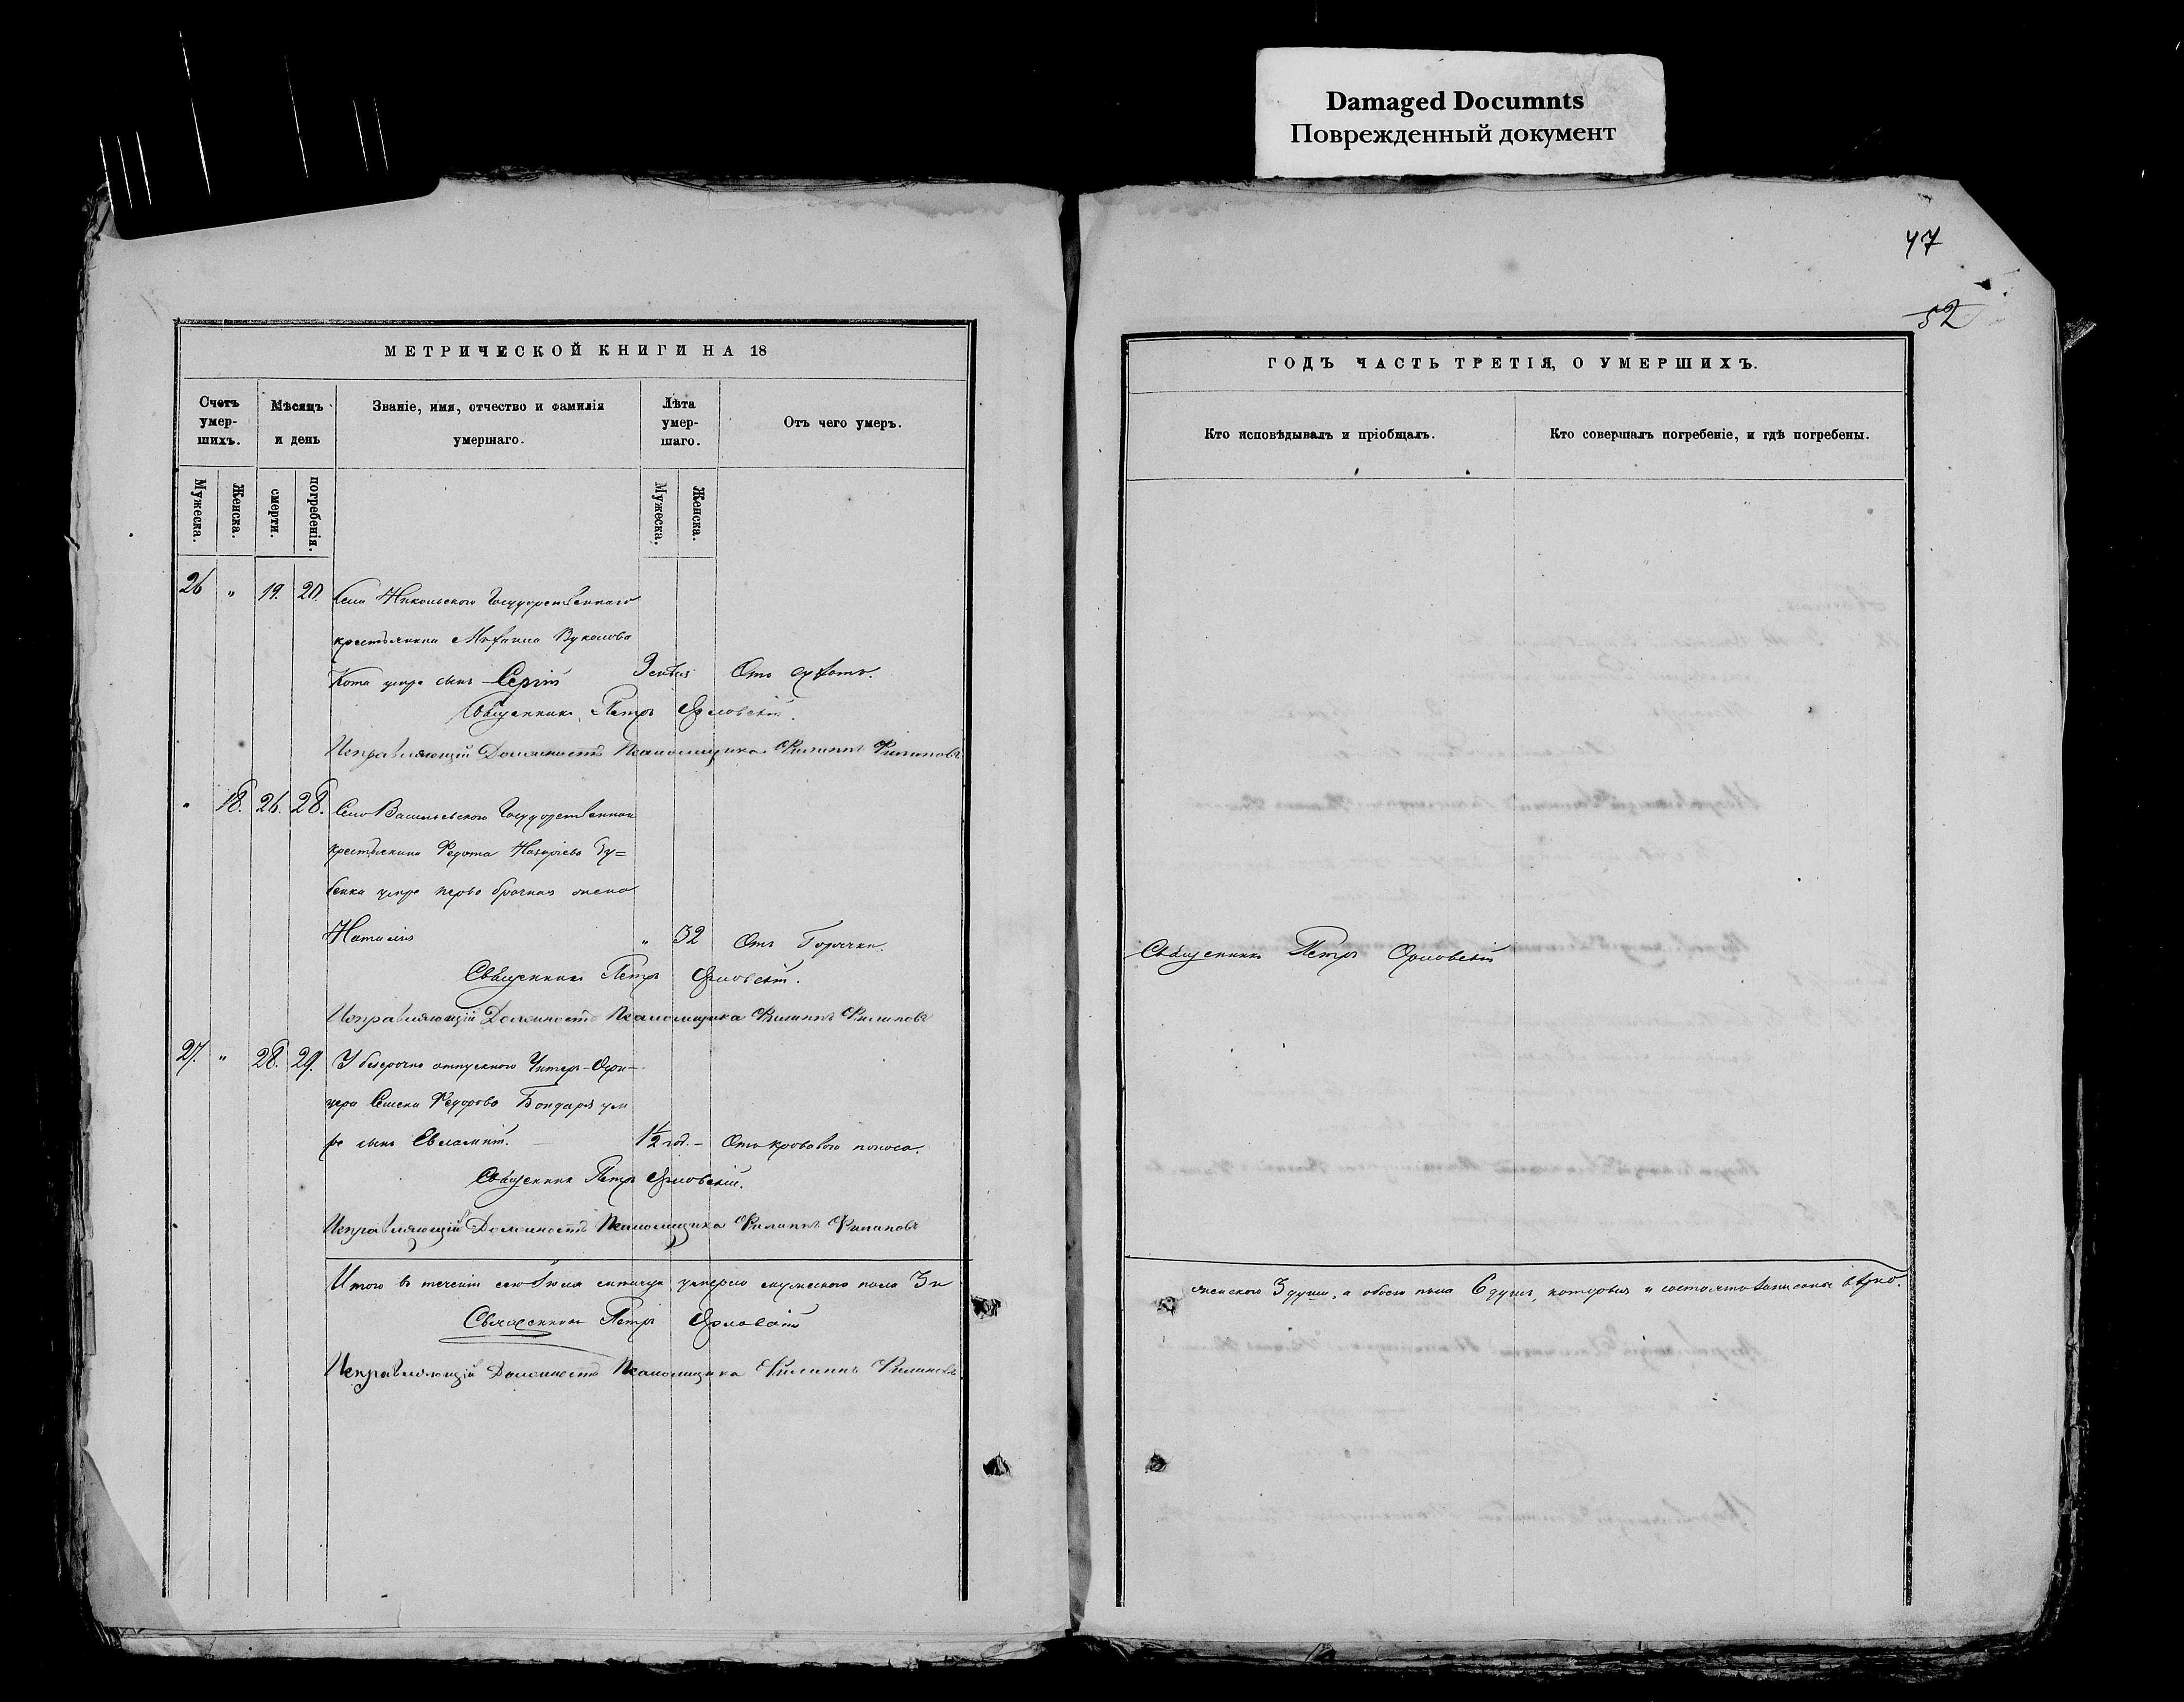 Damaged Documnts
Поврежденный документ
47
52
МЕТРИЧЕСКОЙ КНИГИ НА 18
Счетъ умер-шихъ.
Мѣсяцъ и день
Званіе, имя, отчество и фамилія умершаго.
Лѣта умер-шаго.
Отъ чего умеръ.
Мужеска.
Женска.
смерти.
погребенія.
Мужеска.
Женска.
26 " 19. 20. Села Никольского Государственнаго
крестьянина Михаила Вуколова
Кота умре сынъ Сергій Отъ сухотъ.
Священникъ Петръ Орловскій.
Исправляющій Должность Псаломщика Филиппъ Филиповъ
" 18. 26. 28. Села Васильевского Государственнаго
крестьянина Федота Назарьева
умре перво брачная жена
Наталія " 32 Отъ Горячки.
Священникъ Петръ Орловскій.
Исправляющій Должность Псаломщика Филиппъ Филиповъ
27. " 28. 29. У безсрочно отпускного Унтеръ-Офи-
цера Семена Федорова Бондаря ум
ре сынъ Евлампій. 1/2 год. - Отъ кроваваго поноса.
Священникъ Петръ Орловскій.
Исправляющій Должность Псаломщика Филиппъ Филиповъ
Итого въ теченіи сего Іюля месяца умерло мужескаго пола 3 и
Священникъ Петръ Орловскій
Исправляющій Должность Псаломщика Филиппъ Филиповъ
ГОДЪ ЧАСТЬ ТРЕТІЯ, О УМЕРШИХЪ.
Кто исповѣдывалъ и пріобщалъ.
Кто совершалъ погребеніе, и гдѣ погребены.
Священникъ Петръ Орловскій
женского 3 души, а обоего пола 6 душъ, которыя и состоятъ записаны вѣрно.